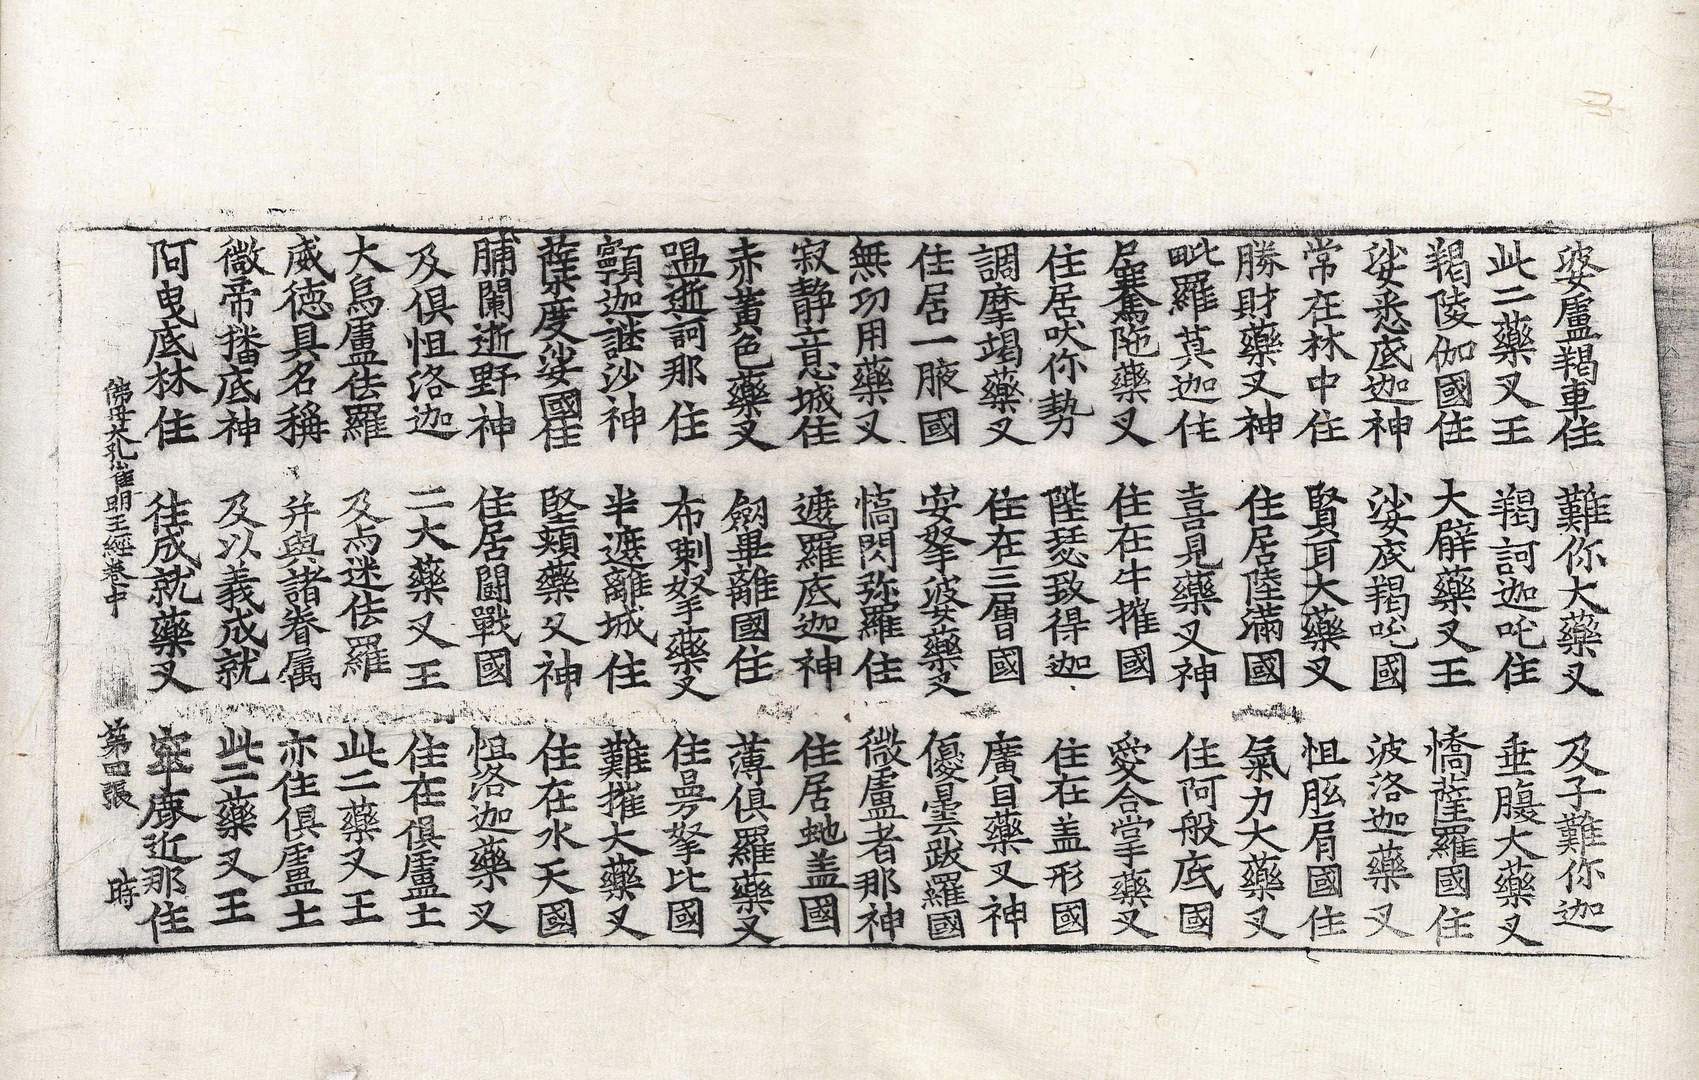 婆盧羯車住　難你大藥叉　及子難你迦
此二藥叉王　羯訶迦吒住　垂腹大藥叉
羯陵伽國住　大臂藥叉王　憍薩羅國住
娑悉底迦神　娑底羯吒國　波洛迦藥叉
常在林中住　賢耳大藥叉　怛胝肩國住
勝財藥叉神　住居陸滿國　氣力大藥叉
毗羅莫迦住　喜見藥叉神　住阿般底國
尸騫馱藥叉　住在牛摧國　愛合掌藥叉
住居吠你勢　陛瑟致得迦　住在蓋形國
調摩竭藥叉　住在三層國　廣目藥叉神
住居一腋國　安拏波藥叉　優曇跋羅國
無功用藥叉　憍閃弥羅住　微盧者那神
寂静意城住　遮羅底迦神　住居蚍盖國
赤黃色藥叉　劒畢離國住　薄俱羅藥叉
嗢逝訶那住　布喇拏藥叉　住㬋拏比國
顐迦謎沙神　半遮離城住　難摧大藥叉
蘗度娑國住　堅頰藥叉神　住在水天國
脯闌逝野神　住居鬪戰國　怛洛迦藥叉
及俱怛洛迦　二大藥叉王　住在俱盧土
大烏盧佉羅　及㫋迷佉羅　此二藥叉王
威德具名稱　并與諸眷属　亦住俱盧土
微帝播底神　及以義成就　此二藥叉王
阿曳底林住　往成就藥叉　窣鹿近那住
佛母大孔雀明王經卷中　第四張　時